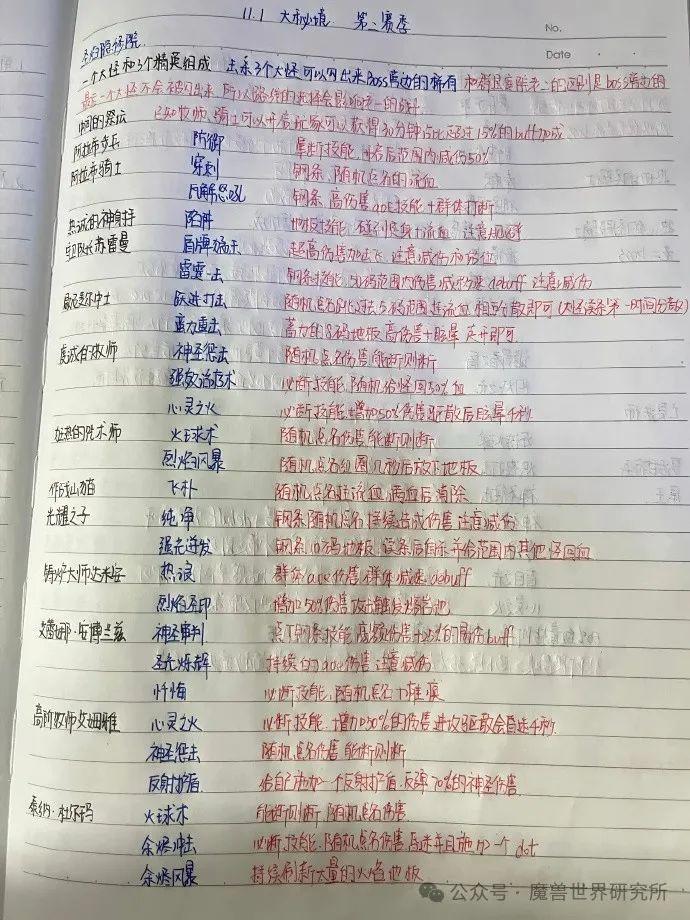 11.1 大秘境 第二赛季
No.
Date
圣焰隐修院
一个大怪和3个精英组成 击杀3个大怪可以叫出来Boss旁边的稀有
最后一个大怪不会被叫出来 所以路线的选择会影响老一的战斗
中间的祭坛 已知牧师、骑士可以开启 玩家可以获得30分钟 的buff加成
阿拉希步兵 防御 掌断技能, 范围内减伤50%
阿拉希骑士 穿刺 钢条, 随机点名的流血
瓦解怒吼 钢条 高伤害aoe技能+群体打断
热诚的神射手 陷阱 地板技能, 流血 注意规避
卫队长苏雷曼 盾牌猛击 超高伤害加击飞 注意减伤和站位
雷霆一击 钢条技能, 50码范围内伤害减移速debuff 注意减伤
最尼麦尔中士 跃进打击 随机点名 5码范围挂流血 相互分散即可
蛮力重击 蓄力的8码地板 高伤害+眩晕 走开即可
虔诚的牧师 神圣惩击 随机点名伤害 能断则断
强效治疗术 必断技能, 随机给怪回50%血
心灵之火 必断技能, 增加50%伤害 驱散后自晕4秒
狂热的咒术师 火球术 随机点名伤害 能断则断
烈焰风暴 随机点名红圈 几秒后放下地板
作战山猫 飞扑 随机点名挂流血, 满血后消除
光耀之子 纯净 钢条 随机点名 持续造成伤害 注意减伤
强光迸发 钢条 10码地板, 读条后自杀 并给范围内其他怪回血
铸炉大师达米安 热浪 群体aoe伤害 群体减速debuff
烈焰圣印 增加50%伤害 攻击触发熔岩池
艾蕾娜·安博兰兹 神圣审判 点T钢条技能, 高额伤害+25%的易伤buff
圣光烁辉 持续的aoe伤害 注意减伤
忏悔 必断技能, 随机点名
高阶牧师艾姆雅 心灵之火 必断技能, 增加50%的伤害 进攻驱散会自迷4秒
神圣惩击 随机点名伤害 能断则断
反射护盾 给自己施加一个反射护盾, 反弹70%的神圣伤害
泰纳·杜尔玛 火球术 能断则断, 随机点名伤害
余烬冲击 必断技能, 随机点名伤害 后来并且施加一个dot
余烬风暴 持续刷新大量的火焰地板
公众号·魔兽世界研究所